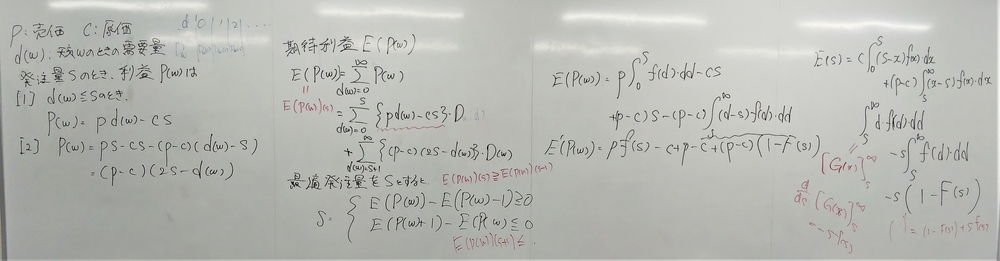 P:売価 C:原価
d(w):天気wのときの需要量
発注量Sのとき、利益P(w)は
[1] d(w)≦Sのとき、
P(w)= p d(w)-cs
[2] P(w)= ps-cs-(p-c)(d(w)-s)
=(p-c)(2s-d(w))
期待利益E(P(w))
E(P(w))=∑^∞_{d(w)=0} P(w)
E(P(w))(s)
=∑^S_{d(w)=0} {p d(w)-cs}・D
+∑^∞_{d(w)=s+1} {(p-c)(2s-d(w))}・D(w)
最適発注量をSとすると、 E(P(w))(s)≧E(P(w))(s-1)
S= { E(P(w))-E(P(w)-1)≧0
E(P(w)+1)-E(P(w)≦0
E(P(w))(s+1)≦
E(P(w))= p∫^S_0 f(d)・dd-cs
+(p-c)s-(p-c)∫^∞_S(d-s)・f(d)・dd
E'(P(w))= p f(s)-c+p-c+(p-c)(1-F(s))
E(s)= c∫^S_0(s-x)f(x)dx
+(p-c)∫^∞_S(x-s)・f(x)・dx
∫^∞_S d・f(d)・dd
[G(x)]^∞_S -s∫^∞_S f(d)・dd
d/ds [G(x)]^∞_S -s(1-F(s))
-s・f(s) ( )'=-(1-F(s))+s f(s)